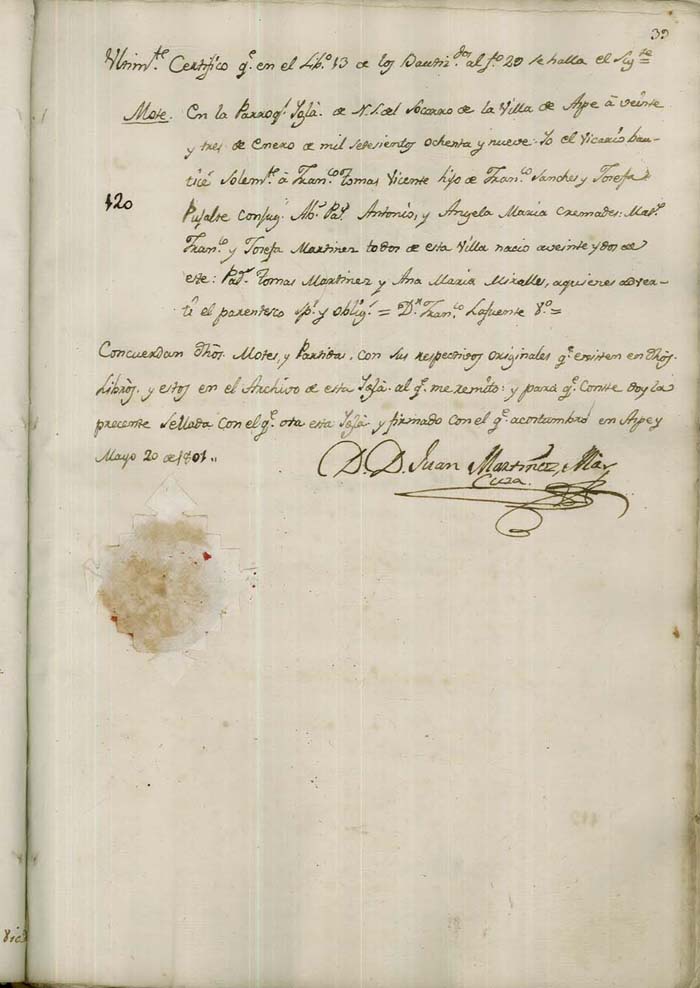 39
Ultimte. Certifico q.e en el Lib.o 13 de los Bautiz.dos al f.o 29 se halla el Sig.te =
Mote. En la Parroq.l Igla. de N. S. del Socorro de la Villa de Aspe à veinte
y tres de Enero de mil setesientos ochenta y nueve. Yo el Vicario bau-
ticé Solem.te à Fran.co Tomas Vicente hijo de Fran.co Sanches y Josefa
120
Pujalte Consug.s Ab.s Pat.s Antonio, y Angela Maria Cremades: Mat.s
Fran.co y Josefa Martinez todos de esta Villa nacio a veinte y dos de
este: Pad.s Tomas Martinez y Ana Maria Miralles, a quienes adver-
ti el parentesco Sp.l y oblig.s = D.r Fran.co Lafuente V.o =
Concuerdan dhos. Motes, y Partidas, con sus respectivos originales q.e existen en dhos.
Libros. y estos en el Archivo de esta Igla. al q.e me remito: y para q.e Conste doy la
precente Sellada con el q.e usa esta Igla. y firmado con el q.e acostumbro en Aspe y
Mayo 20 de 1801,,
D. D. Juan Martinez, Mar
Cura.